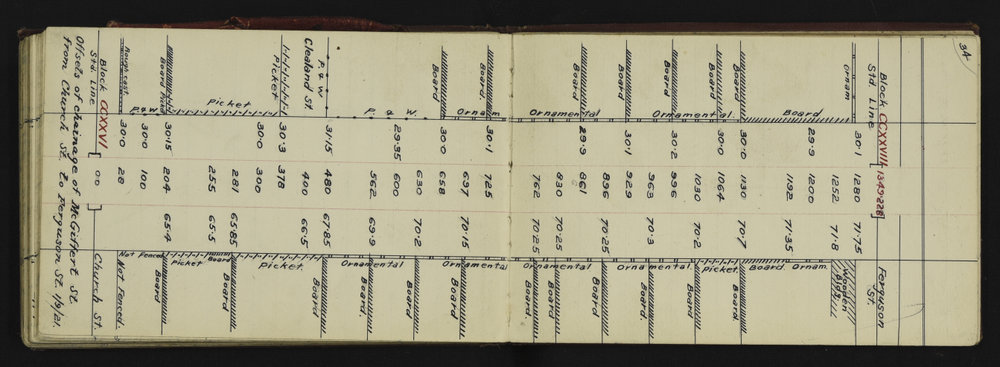 34
Block CCXXVIII 1349·228 Ferguson
Std Line St.
30·1 1280 71·75
Ornam 1252 71·8 Wooden Bldg
Board 29·9 1200 Ornam.
1192 71·35
Board
Board 30·0 1130 70·7
Board 30·0 1064 Picket
1030 70·2
Ornamental
Board 30·2 996 Board
963 70·3 Ornamental
Board 30·1 929 Board
896 70·25
29·9 861 Board
Ornamental
830 70·25 Board
762 70·25 Ornamental
Board
Board. 30·1 725
Ornam 697 70·15 Ornamental
Board
Board 30·0 658
630 70·2 Board
P. & W. 29·35 600
562 69·9 Ornamental
Board
P. & W 31·15 480 67·85
Cleland St. Board
400 66·5
Picket 30·3 378 Picket
30·0 300
Picket 281 65·85 Board
Board
255 65·5
Board Picket 30·15 204 65·4 Picket
Board
P. & W 30·0 100 Not Fenced
Roughcast 30·0 28 Not Fenced.
Block CCXXVI 0·0 Church St.
Std. Line
Offsets of chainage of McGiffert St.
from Church St. to Ferguson St. 1/9/21.